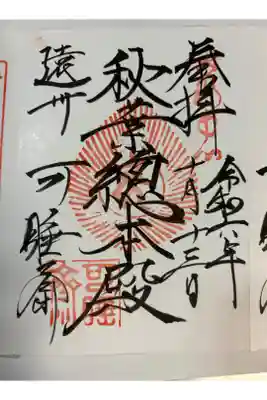 奉拝
令和六年
十月十三日
秋葉總本殿
遠州 可睡斎